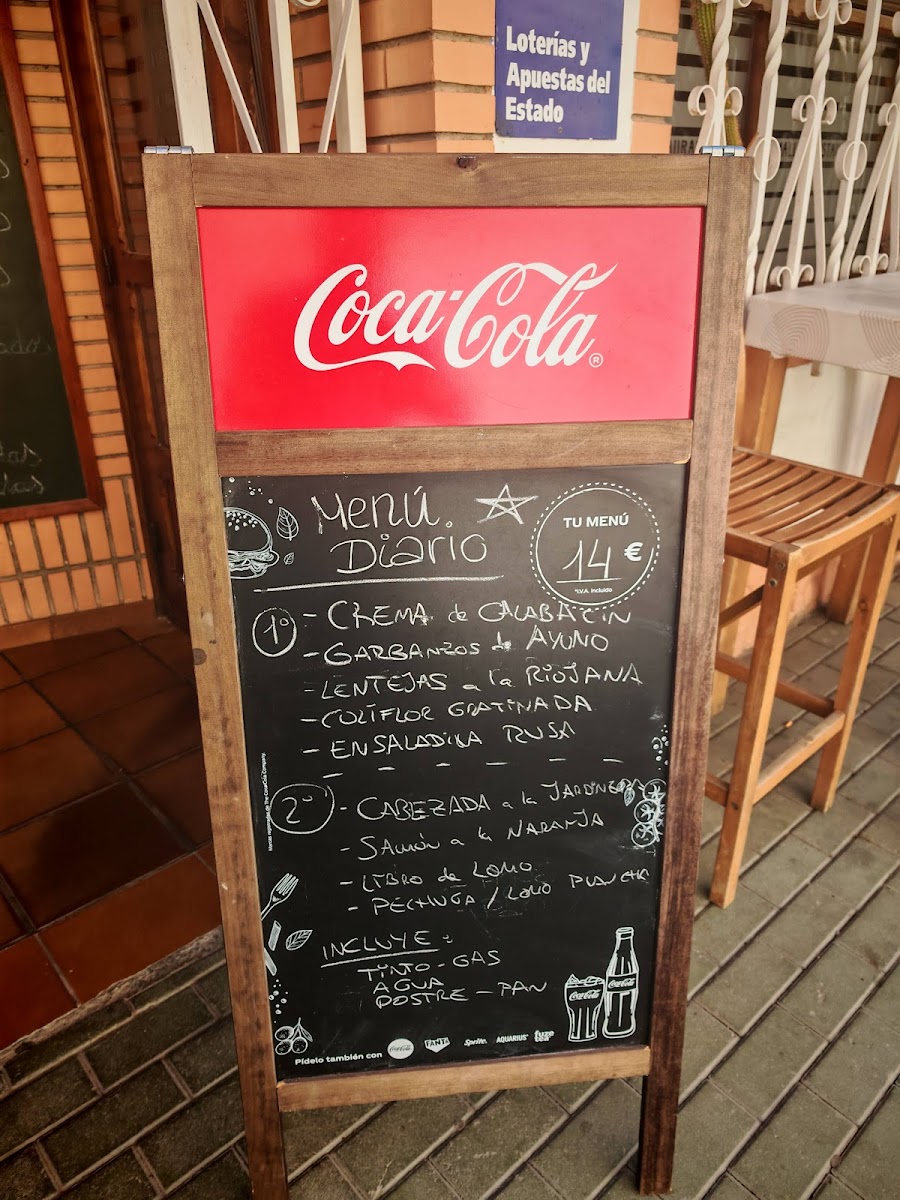 Loterías y
Apuestas del
Estado
Coca-Cola®
Menú.
Diario
TU MENÚ
14 €
*I.V.A. Incluido
1º - CREMA de CALABACIN
- GARBANZOS de AYUNO
- LENTEJAS a la RIOJANA
- COLIFLOR GRATINADA
- ENSALADILLA RUSA
2º - CABEZADA a la JARDINERA
- SALMÓN a la NARANJA
- LIBRO de LOMO
- PECHUGA / LOMO PLANCHA
INCLUYE:
TINTO - GAS
AGUA
POSTRE - PAN
Coca-Cola
Coca-Cola
Pídelo también con Coca-Cola FANTA Sprite AQUARIUS fuze tea
Marcas registradas de The Coca-Cola Company.